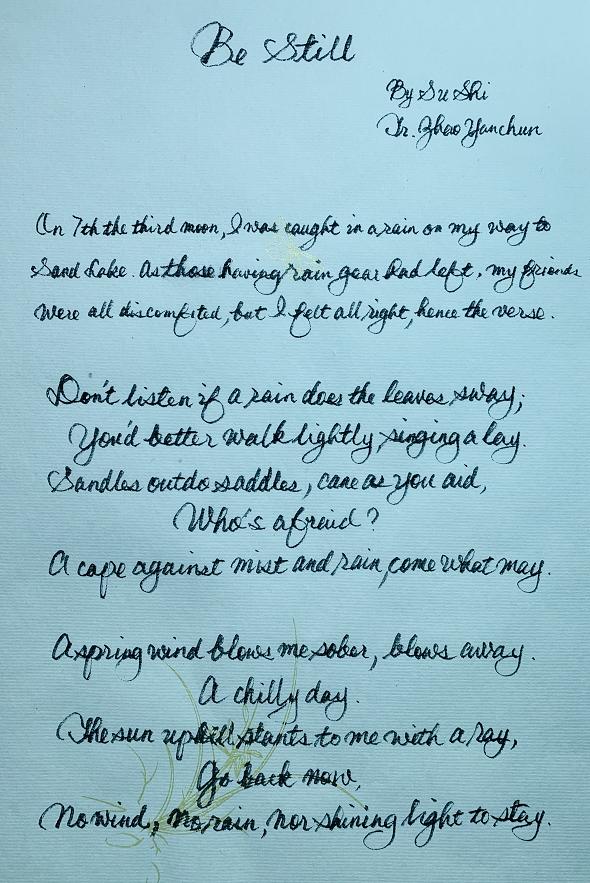 Be Still
By Su Shi
Tr. Zhao Yanchun
On 7th the third moon, I was caught in a rain on my way to
Sand Lake. As those having rain gear had left, my friends
were all discomfited, but I felt all right, hence the verse.
Don't listen if a rain does the leaves sway;
You'd better walk lightly singing a lay.
Sandles outdo saddles, cane as you aid,
Who's afraid?
A cape against mist and rain, come what may.
A spring wind blows me sober, blows away.
A chilly day.
The sun uphill slants to me with a ray,
Go back now,
No wind, no rain, nor shining light to stay.